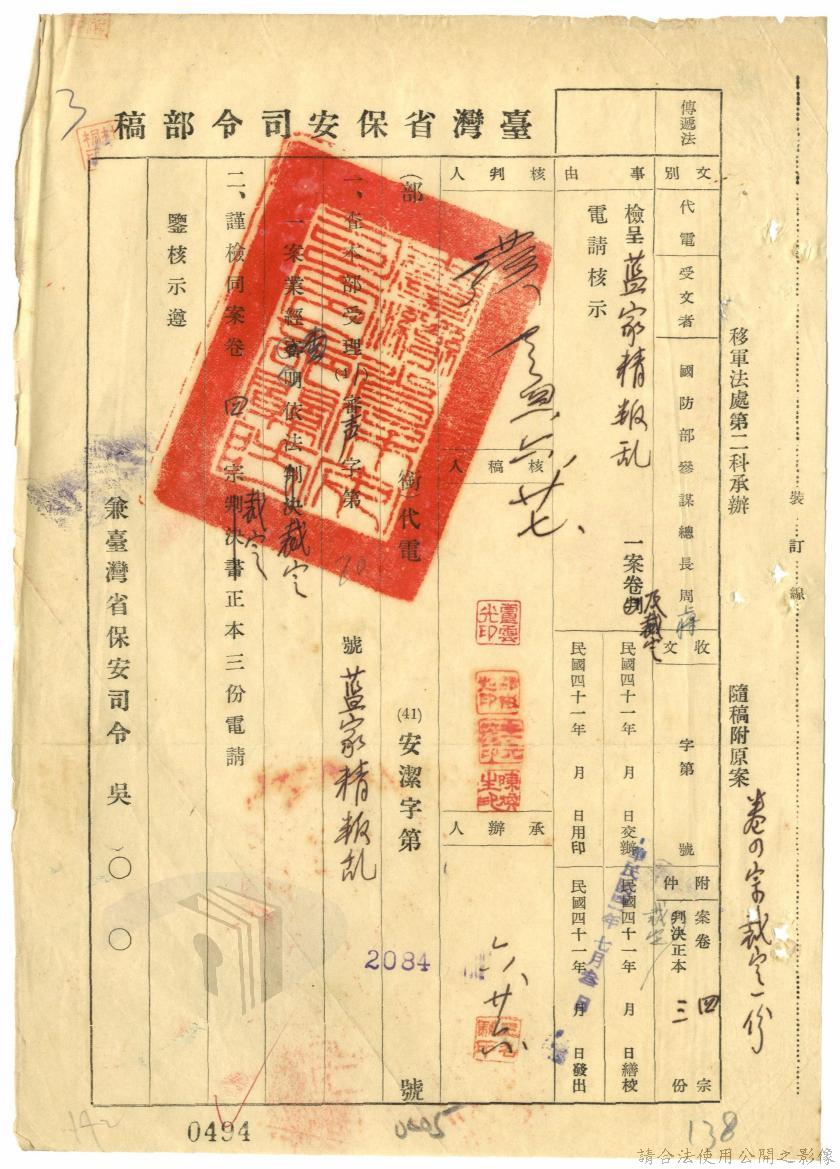 裝訂線
移軍法處第二科承辦
隨稿附原案卷四宗裁定一份
傳遞法
文別
代電
受文者
國防部參謀總長周上將
收文
字第
號
附件
案卷四宗
判決正本三份
裁定
事由
檢呈藍家精叛乱一案卷判及裁定
電請核示
民國四十一年 月 日交辦
民國四十一年 月 日繕校
民國四十一年 月 日用印
民國四十一年 月 日發出
中華民國四一年七月叁日
臺灣省保安司令部稿
核判人
六廿七
核稿人
承辦人
六廿六
(部銜)代電
(41)安潔字第2084號
一、查本部受理(41)審声字第20號藍家精叛乱
一案業經查明依法判決裁定
二、謹檢同案卷四宗判決書正本三份電請
裁定
鑒核示遵
兼臺灣省保安司令吳〇〇
3
142
0494
0405
138
請合法使用公開之影像